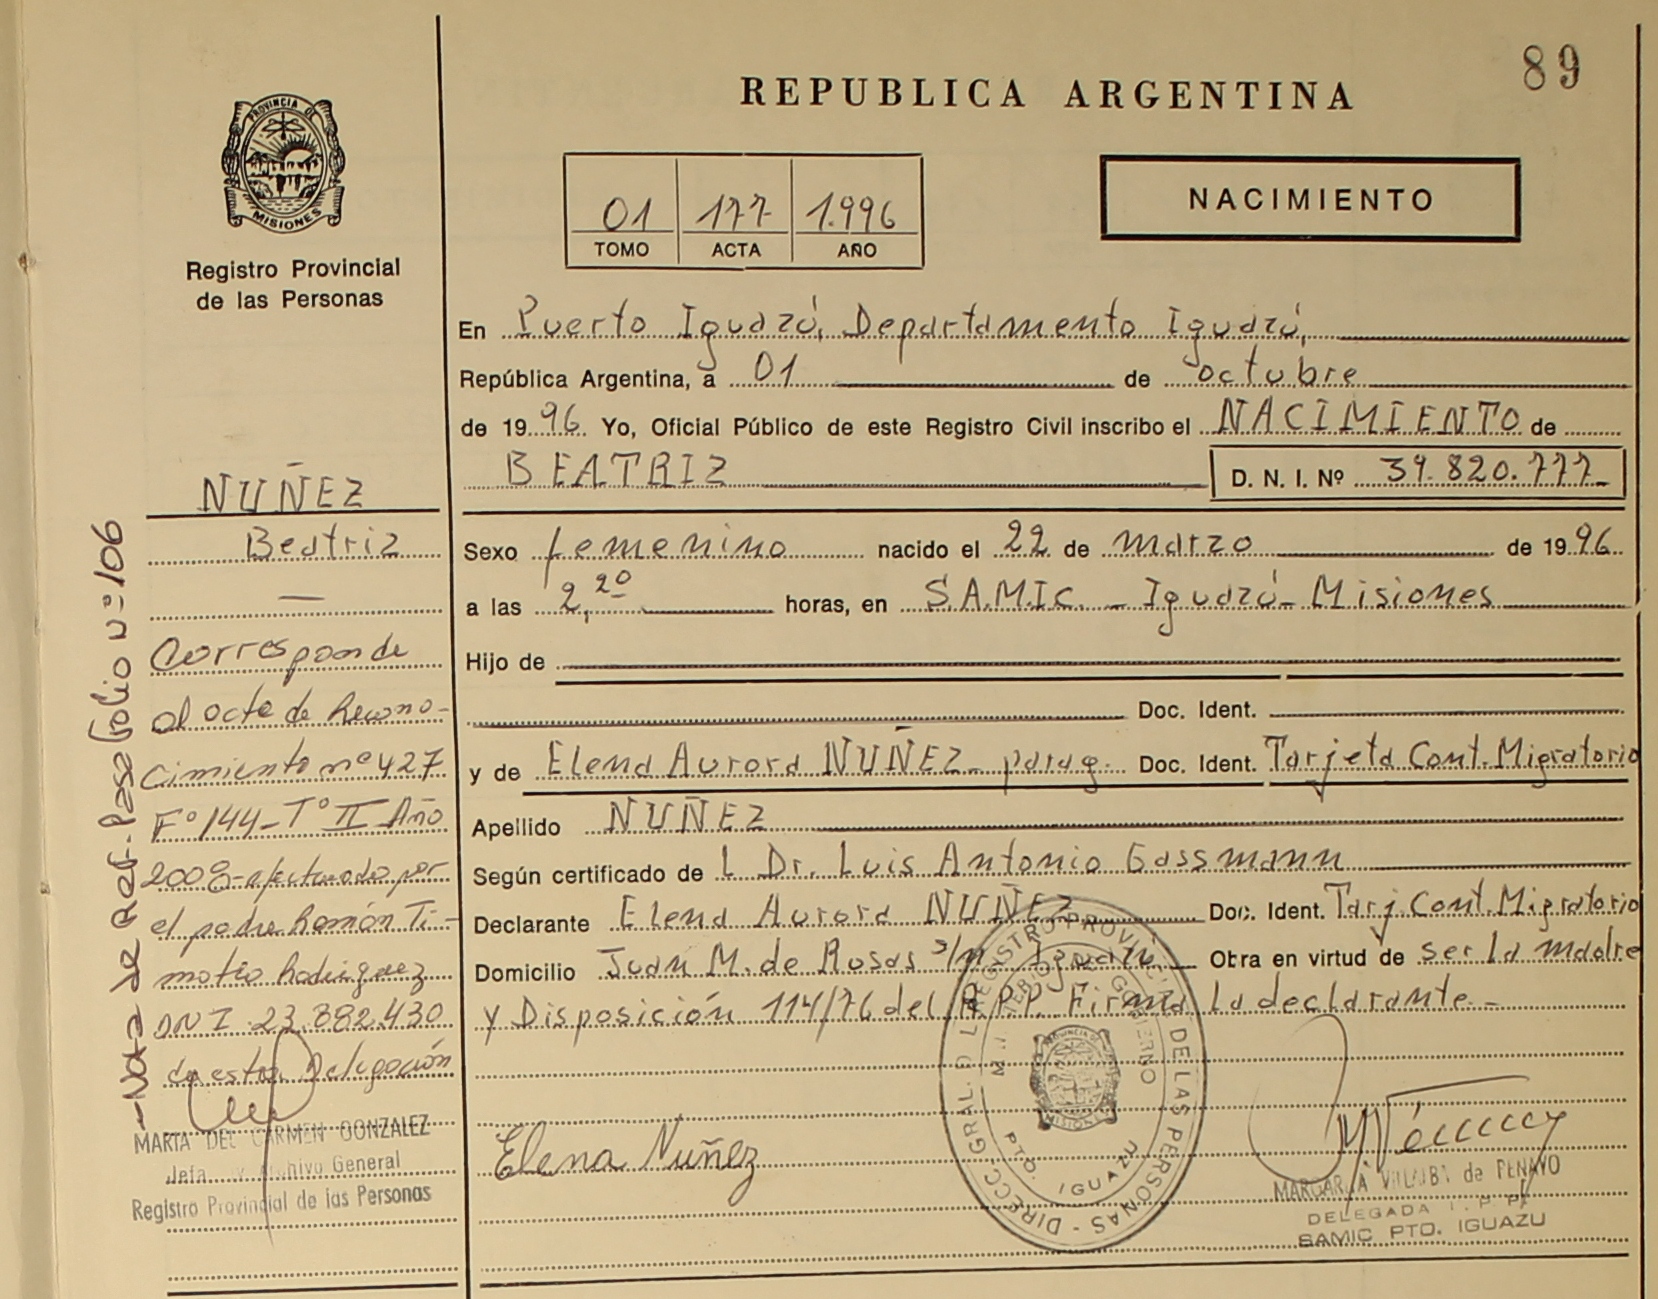 89
REPUBLICA ARGENTINA
PROVINCIA DE
MISIONES
Registro Provincial
de las Personas
01 177 1.996
TOMO ACTA AÑO
NACIMIENTO
En Puerto Iguazú, Departamento Iguazú,
República Argentina, a 01 de octubre
de 1996. Yo, Oficial Público de este Registro Civil inscribo el NACIMIENTO de
BEATRIZ D. N. I. Nº 39.820.777
Sexo femenino nacido el 22 de marzo de 1996.
a las 2,20 horas, en S.A.M.I.C. - Iguazú - Misiones
Hijo de
Doc. Ident.
y de Elena Aurora NUÑEZ - parag. Doc. Ident. Tarjeta Cont. Migratorio
Apellido NUÑEZ
Según certificado de L Dr. Luis Antonio Gassmann
Declarante Elena Aurora NUÑEZ Doc. Ident. Tarj. Cont. Migratorio
Domicilio Juan M. de Rosas s/n Iguazú Obra en virtud de ser la madre
y Disposición 114/76 del R.P.P. Firma la declarante.-
Elena Nuñez
DIRECC. GRAL. DEL REGISTRO PROVINCIAL DE LAS PERSONAS -
GOBIERNO
PTO. IGUAZU
MARGARITA VILLALBA de PENAYO
DELEGADA R. P. P.
SAMIC PTO. IGUAZU
NUÑEZ
Beatriz
—
Corresponde
al acta de Recono-
cimiento nº 427
Fº 144 - Tº II Año
2008 - efectuado por
el padre Ramón Ti-
moteo Rodriguez
DNI 23.882.430
en esta Delegación
MARTA DEL CARMEN GONZALEZ
Jefa Archivo General
Registro Provincial de las Personas
-Nota de Ref.- Pasa folio Nº 106